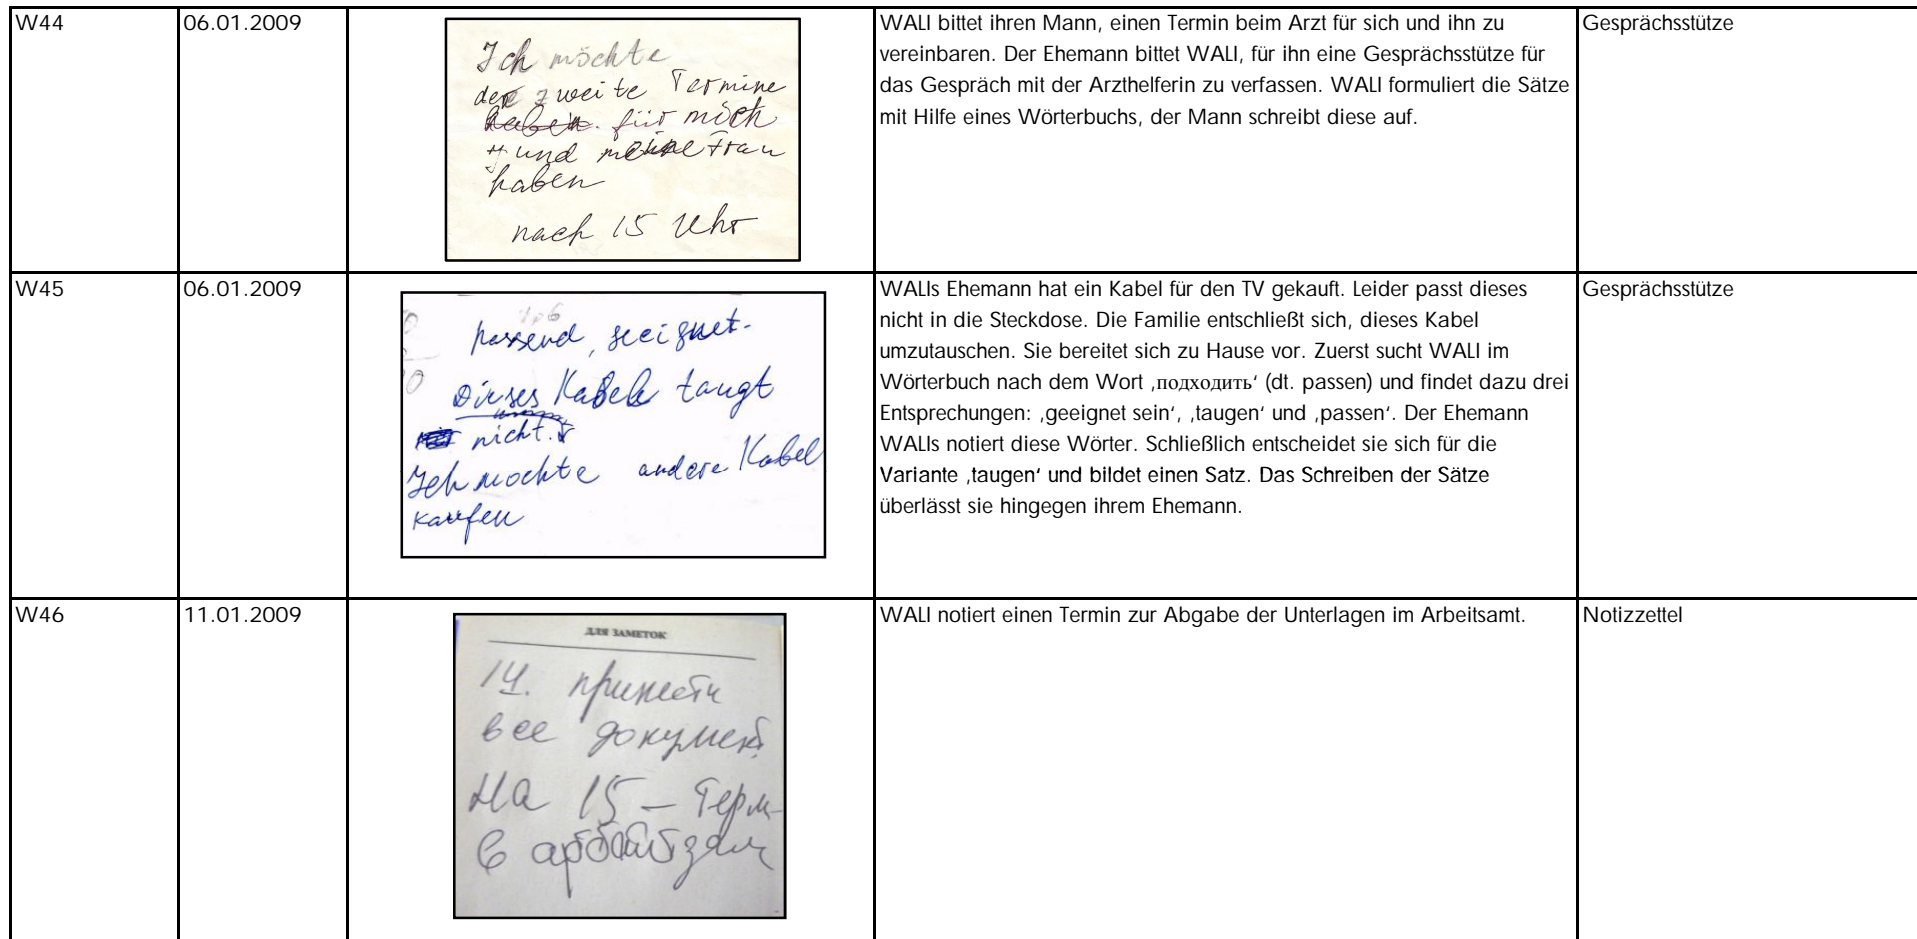 W44
06.01.2009
Ich möchte
der zweite Termine
haben. für mich
und meine Frau
haben
nach 15 Uhr
WALI bittet ihren Mann, einen Termin beim Arzt für sich und ihn zu
vereinbaren. Der Ehemann bittet WALI, für ihn eine Gesprächsstütze für
das Gespräch mit der Arzthelferin zu verfassen. WALI formuliert die Sätze
mit Hilfe eines Wörterbuchs, der Mann schreibt diese auf.
Gesprächsstütze
W45
06.01.2009
passend, geeignet.
Dieses Kabel taugt
nicht.
Ich mochte andere Kabel
kaufen
WALIs Ehemann hat ein Kabel für den TV gekauft. Leider passt dieses
nicht in die Steckdose. Die Familie entschließt sich, dieses Kabel
umzutauschen. Sie bereitet sich zu Hause vor. Zuerst sucht WALI im
Wörterbuch nach dem Wort ‚подходить‘ (dt. passen) und findet dazu drei
Entsprechungen: ‚geeignet sein‘, ‚taugen‘ und ‚passen‘. Der Ehemann
WALIs notiert diese Wörter. Schließlich entscheidet sie sich für die
Variante ‚taugen‘ und bildet einen Satz. Das Schreiben der Sätze
überlässt sie hingegen ihrem Ehemann.
Gesprächsstütze
W46
11.01.2009
ДЛЯ ЗАМЕТОК
14. принести
все документ
На 15 – Терм
в арбайтзам
WALI notiert einen Termin zur Abgabe der Unterlagen im Arbeitsamt.
Notizzettel